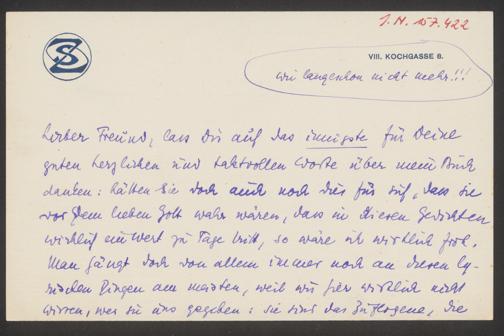 I. N. 157.422
SZ
VIII. KOCHGASSE 8.
wie langenhon nicht mehr!!!
Lieber Freund, lass Dir auf das innigste für Deine
guten herzlichen und taktvollen Worte über mein Buch
danken: hätten Sie doch auch noch dies für sich, dass sie
vor dem lieben Gott wahr wären, dass in diesen Gedichten
wirklich ein Wert zu Tage tritt, so wäre ich wirklich froh.
Man hängt doch von allem immer noch an diesen ly-
rischen Dingen am meisten, weil wir hier wirklich nicht
wissen, wer sie uns gegeben: sie sind das Zugeflogene, die